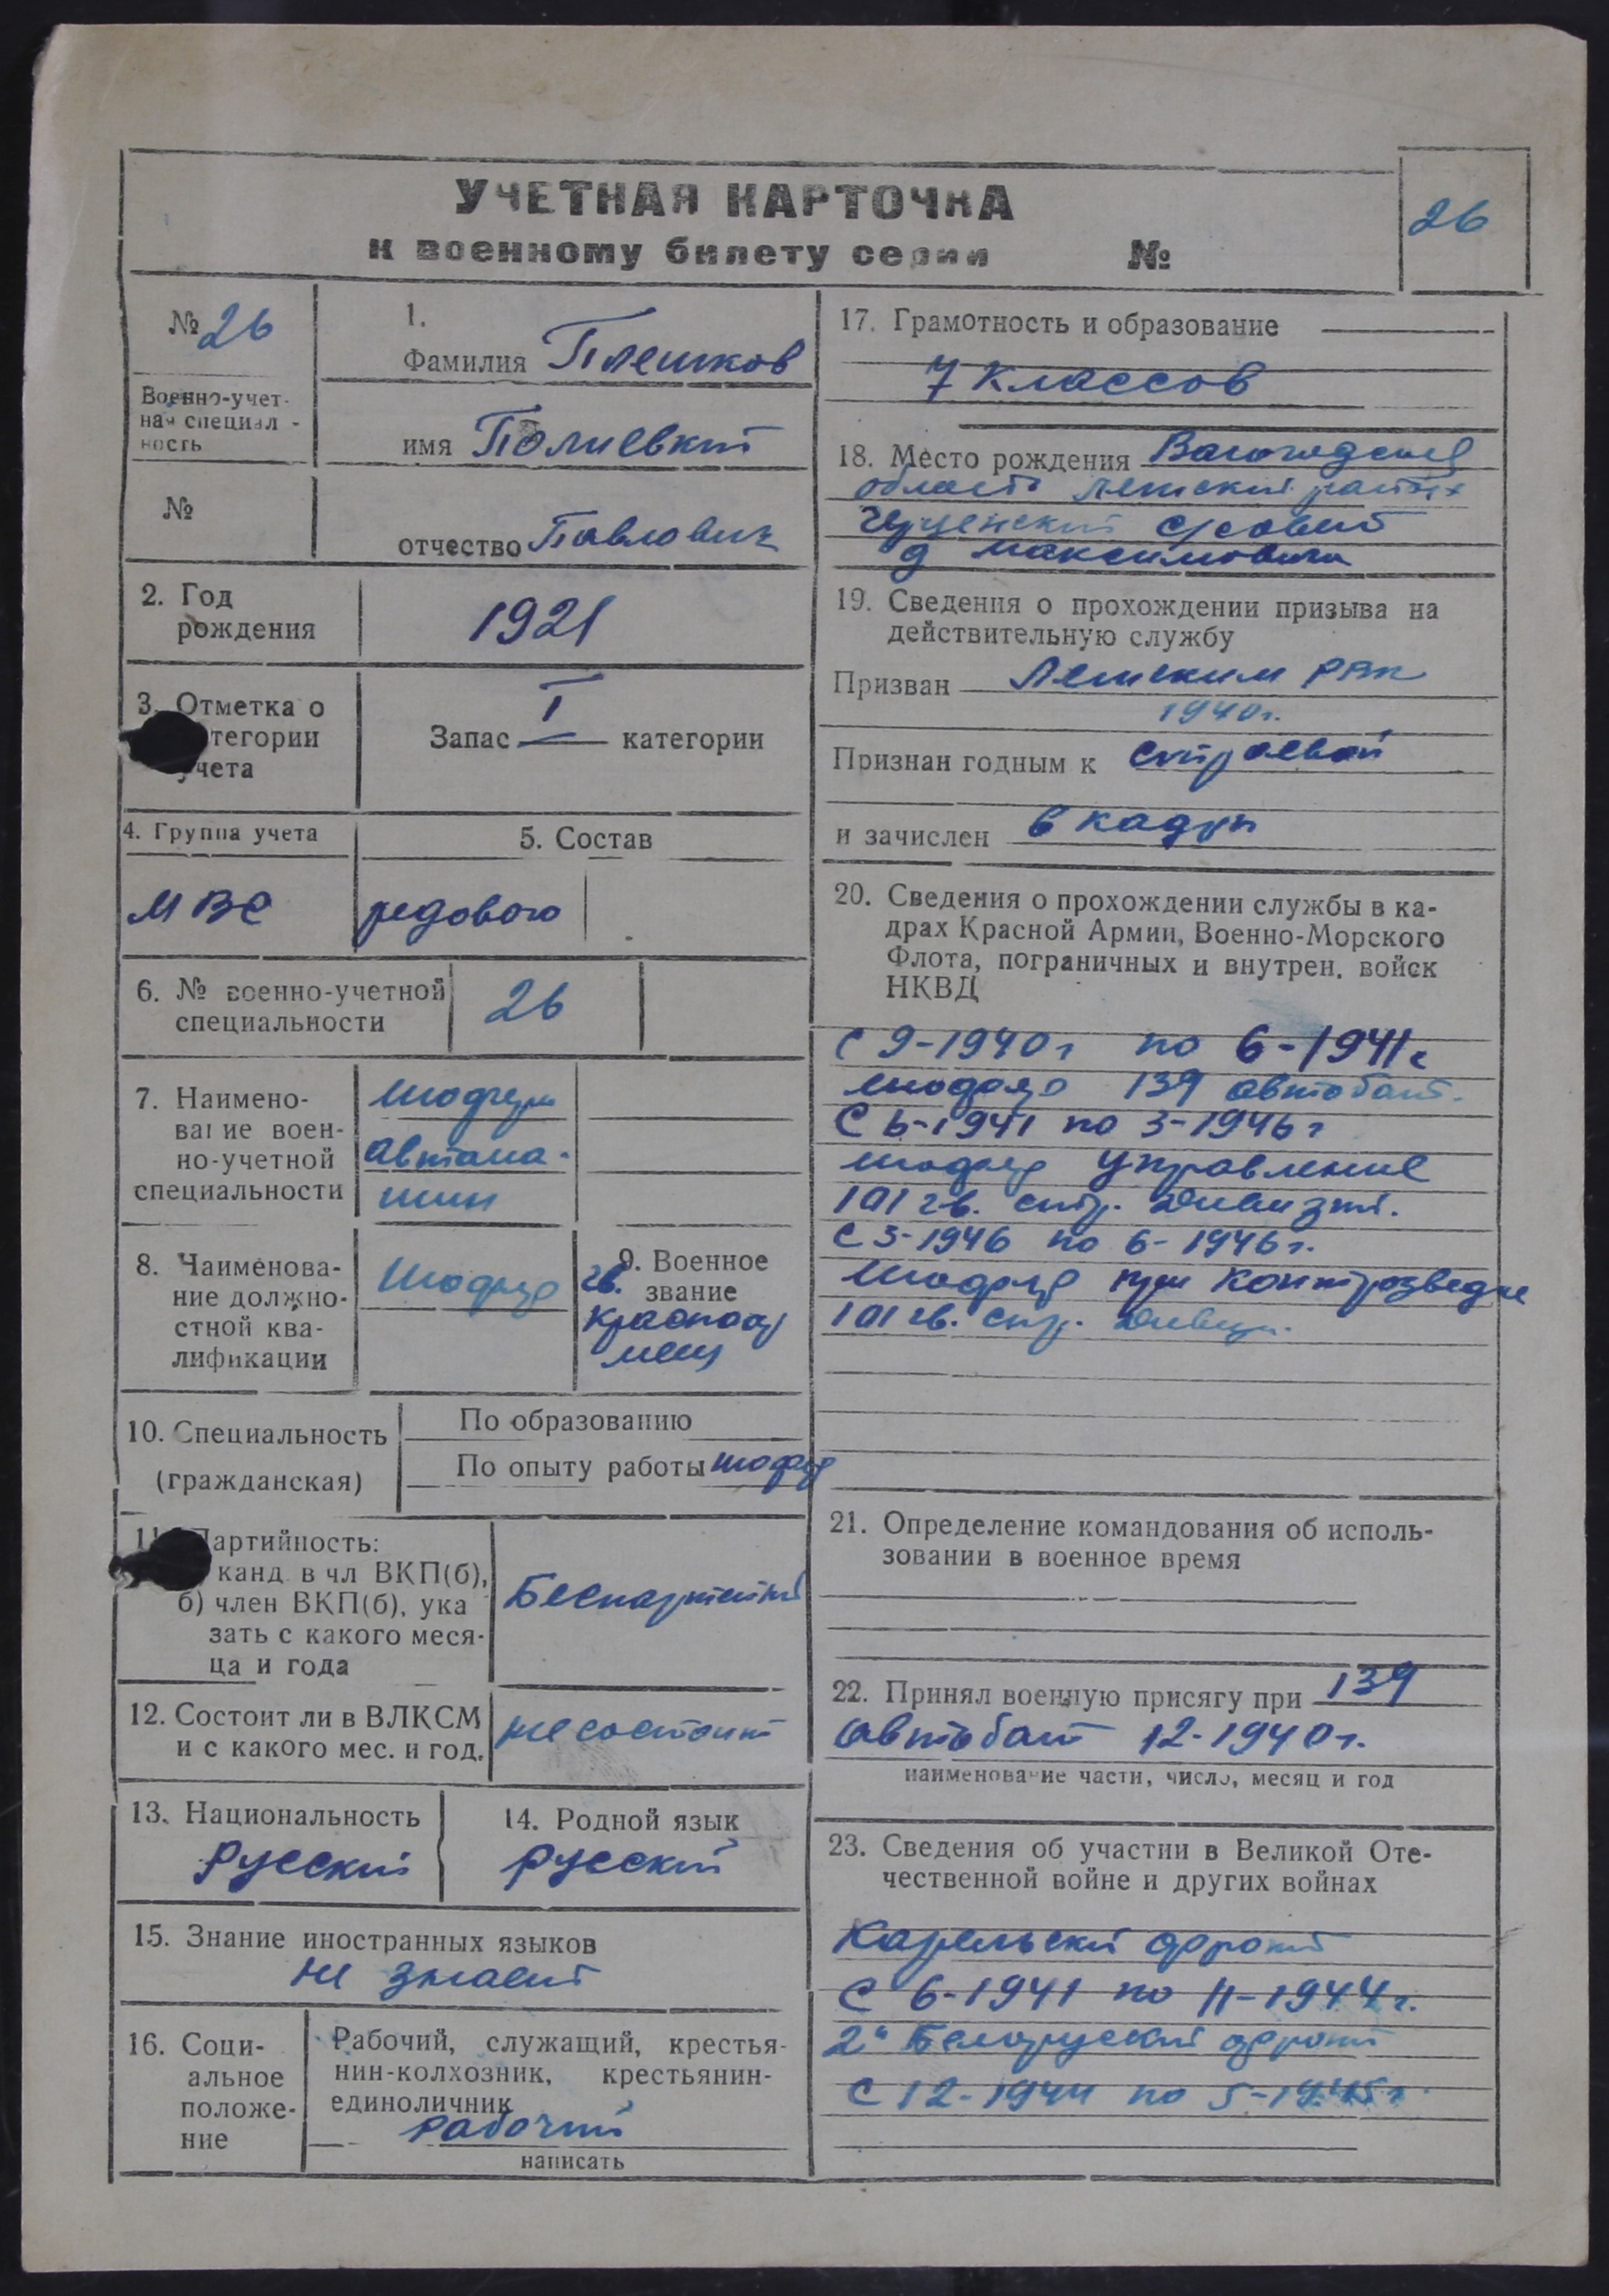 УЧЕТНАЯ КАРТОЧКА
к военному билету серии №
26
№ 26
Военно-учет-
ная специаль-
ность
№
1.
Фамилия Плешков
имя Полиевкт
отчество Павлович
2. Год
рождения
1921
3. Отметка о
тегории
учета
Запас I категории
4. Группа учета
МВС
5. Состав
редового
6. № военно-учетной
специальности
26
7. Наимено-
вание воен-
но-учетной
специальности
Шофера
автома-
шин
8. Наименова-
ние должно-
стной ква-
лификации
Шофер
9. Военное
звание
гв.
Красноар
меец
10. Специальность
(гражданская)
По образованию
По опыту работы шофер
11. Партийность:
канд. в чл ВКП(б),
б) член ВКП(б), ука
зать с какого меся-
ца и года
Беспартейный
12. Состоит ли в ВЛКСМ
и с какого мес. и год.
не состоит
13. Национальность
Русский
14. Родной язык
русский
15. Знание иностранных языков
не знает
16. Соци-
альное
положе-
ние
Рабочий, служащий, крестья-
нин-колхозник, крестьянин-
единоличник
рабочий
написать
17. Грамотность и образование
7 классов
18. Место рождения
область район
с/совет
д
19. Сведения о прохождении призыва на
действительную службу
Призван Ленским РВК
1940г.
Признан годным к строевой
и зачислен в кадры
20. Сведения о прохождении службы в ка-
драх Красной Армии, Военно-Морского
Флота, пограничных и внутрен. войск
НКВД
С 9-1940г по 6-1941г
шофер 139 автобат.
С 6-1941 по 3-1946г
шофер управление
101 гв. стр. дивизии.
С 3-1946 по 6-1946г.
Шофер при Контрозведке
101 гв. стр. дивиз.
21. Определение командования об исполь-
зовании в военное время
22. Принял военную присягу при 139
автобат 12-1940г.
наименование части, число, месяц и год
23. Сведения об участии в Великой Оте-
чественной войне и других войнах
Карельский фронт
С 6-1941 по 11-1944г.
2й Белоруский фронт
С 12-1944 по 5-1945г